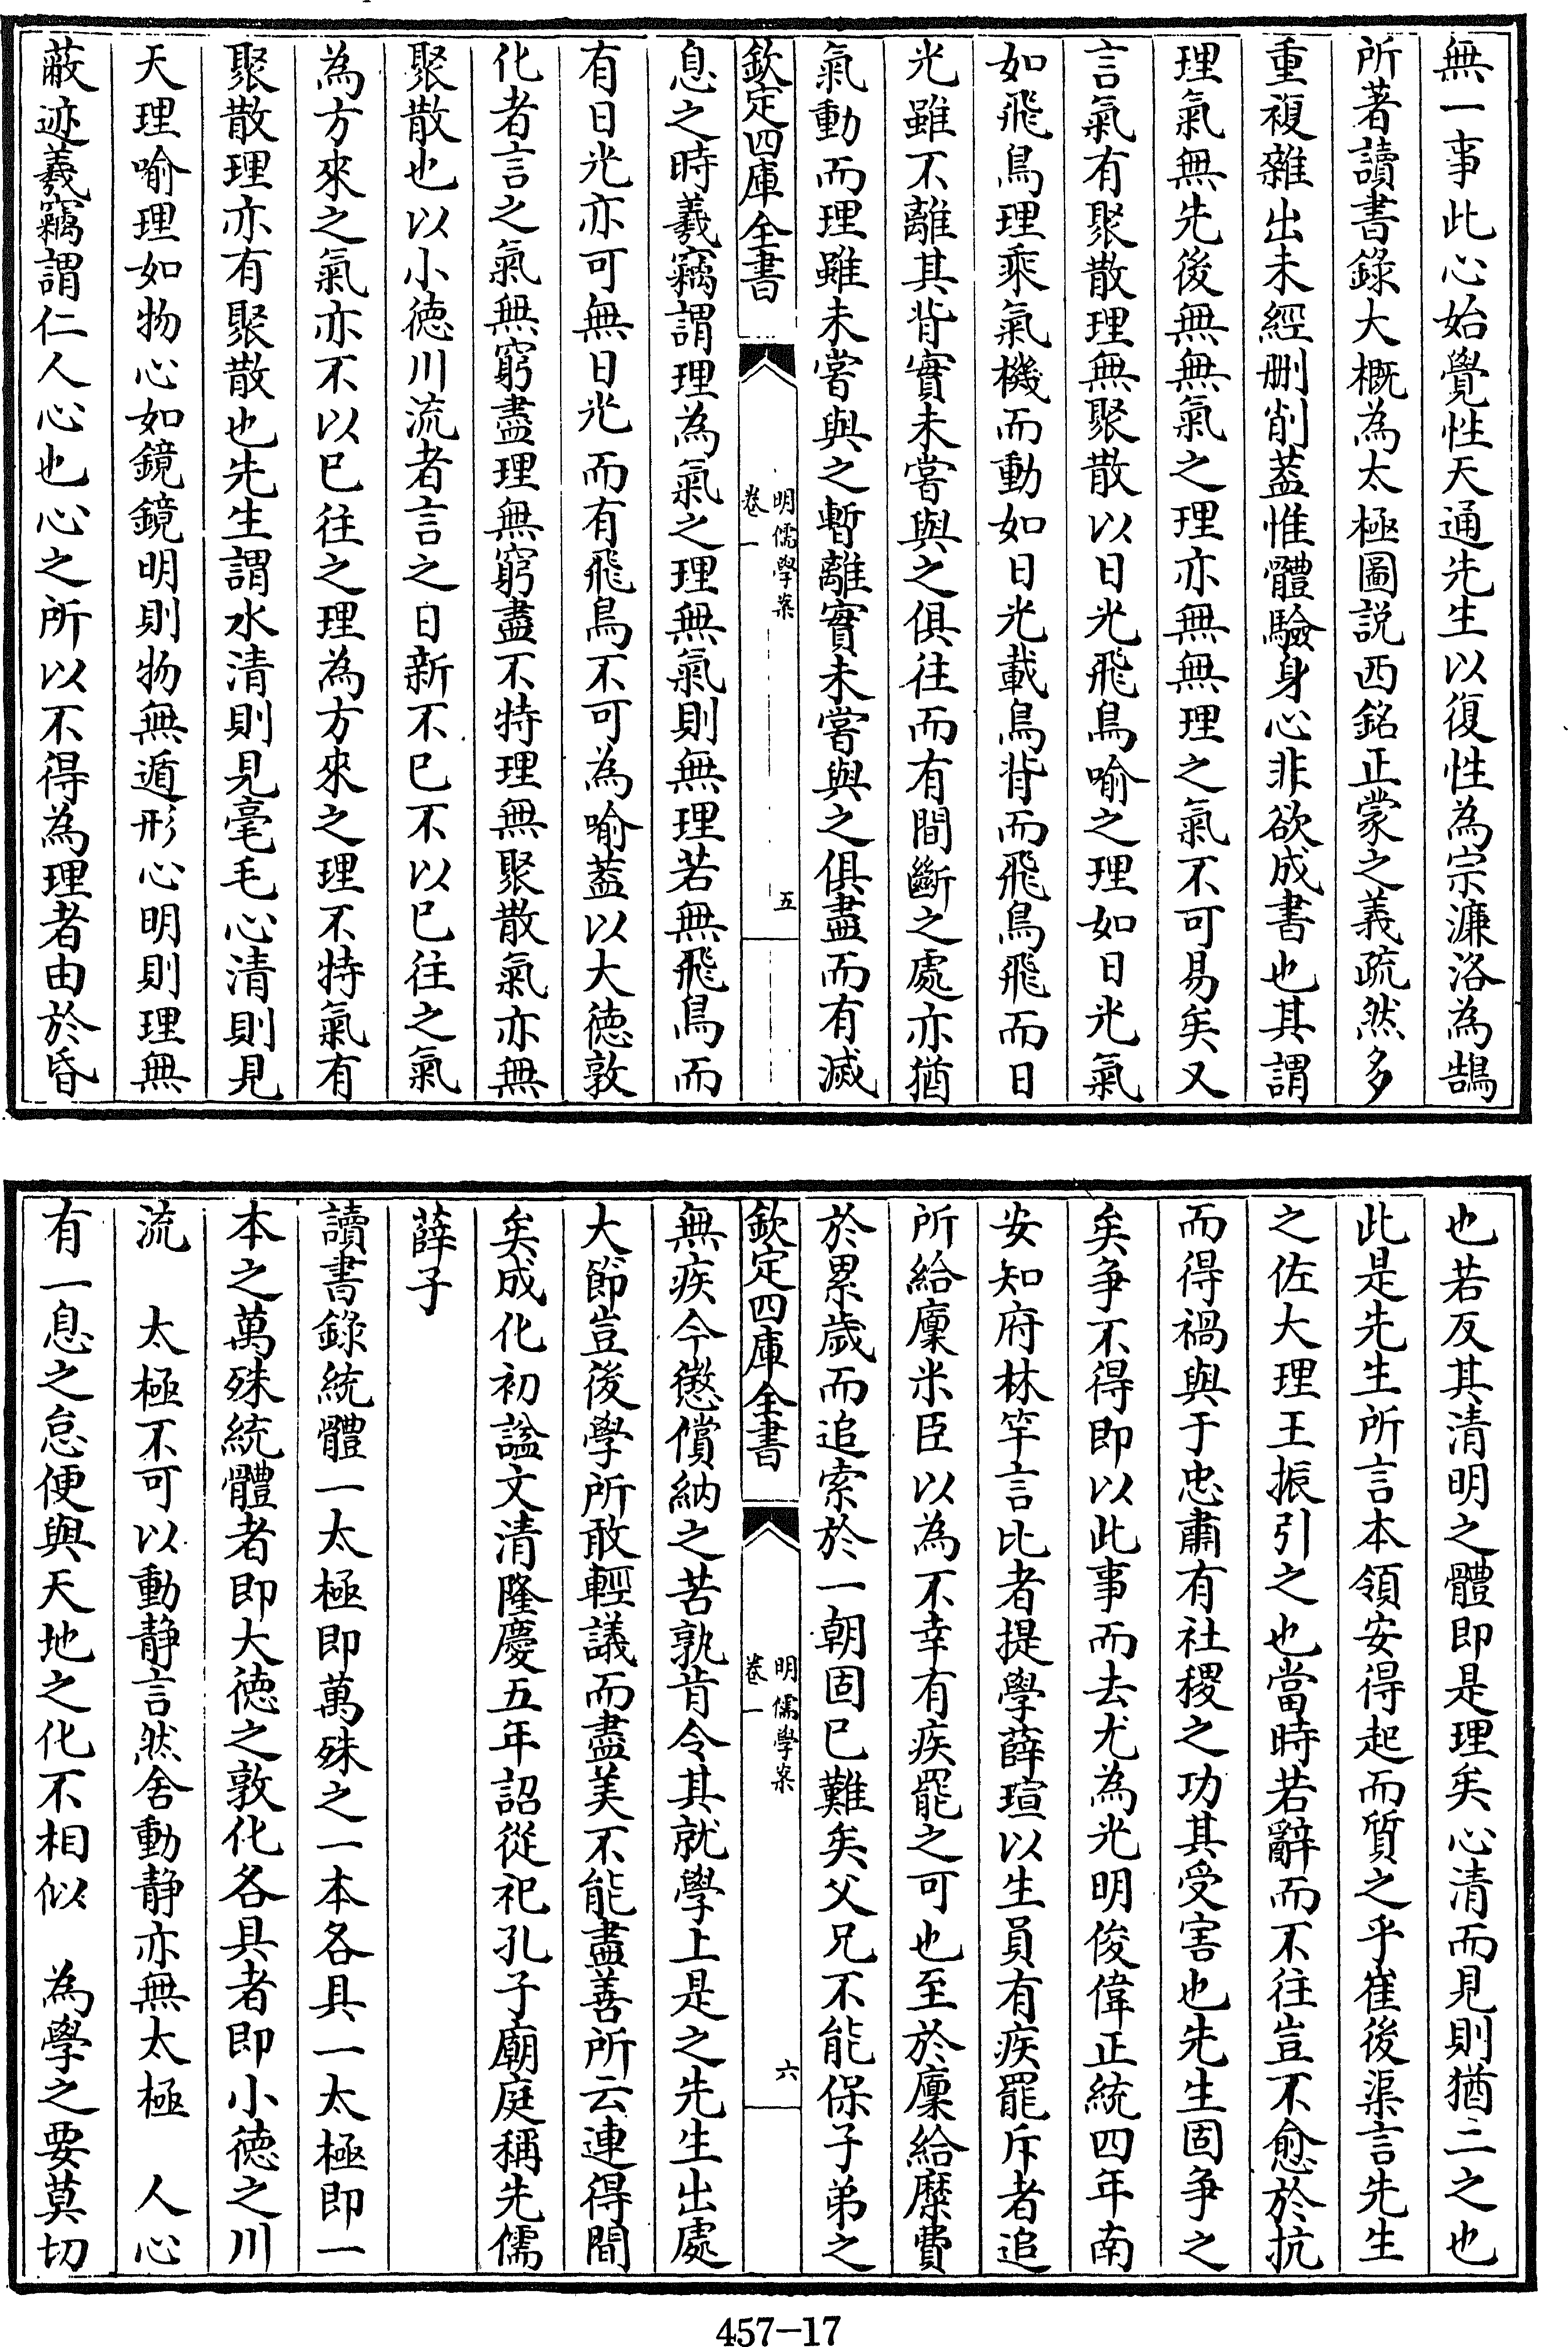 無一事此心始覺性天通先生以復性為宗濂洛為鵠
所著讀書錄大概為太極圖説西銘正蒙之義疏然多
重複雜出未經刪削葢惟體驗身心非欲成書也其謂
理氣無先後無無氣之理亦無無理之氣不可易矣又
言氣有聚散理無聚散以日光飛鳥喻之理如日光氣
如飛鳥理乘氣機而動如日光載鳥背而飛鳥飛而日
光雖不離其背實未嘗與之俱往而有間斷之處亦猶
氣動而理雖未嘗與之暫離實未嘗與之俱盡而有滅
欽定四庫全書
明儒學案
卷一
五
息之時羲竊謂理為氣之理無氣則無理若無飛鳥而
有日光亦可無日光而有飛鳥不可為喻葢以大德敦
化者言之氣無窮盡理無窮盡不特理無聚散氣亦無
聚散也以小德川流者言之日新不已不以已往之氣
為方來之氣亦不以已往之理為方來之理不特氣有
聚散理亦有聚散也先生謂水清則見毫毛心清則見
天理喻理如物心如鏡鏡明則物無遁形心明則理無
蔽迹羲竊謂仁人心也心之所以不得為理者由於昏
也若反其清明之體即是理矣心清而見則猶二之也
此是先生所言本領安得起而質之乎崔後渠言先生
之佐大理王振引之也當時若辭而不往豈不愈於抗
而得禍與于忠肅有社稷之功其受害也先生固爭之
矣爭不得即以此事而去尤為光明俊偉正統四年南
安知府林竿言比者提學薛瑄以生員有疾罷斥者追
所給廩米臣以為不幸有疾罷之可也至於廩給糜費
於累歲而追索於一朝固已難矣父兄不能保子弟之
欽定四庫全書
明儒學案
卷一
六
無疾今懲償納之苦孰肯令其就學上是之先生出處
大節豈後學所敢輕議而盡美不能盡善所云連得間
矣成化初諡文清隆慶五年詔從祀孔子廟庭稱先儒
薛子
讀書錄統體一太極即萬殊之一本各具一太極即一
本之萬殊統體者即大德之敦化各具者即小德之川
流　太極不可以動靜言然舍動靜亦無太極　人心
有一息之怠便與天地之化不相似　為學之要莫切
457-17